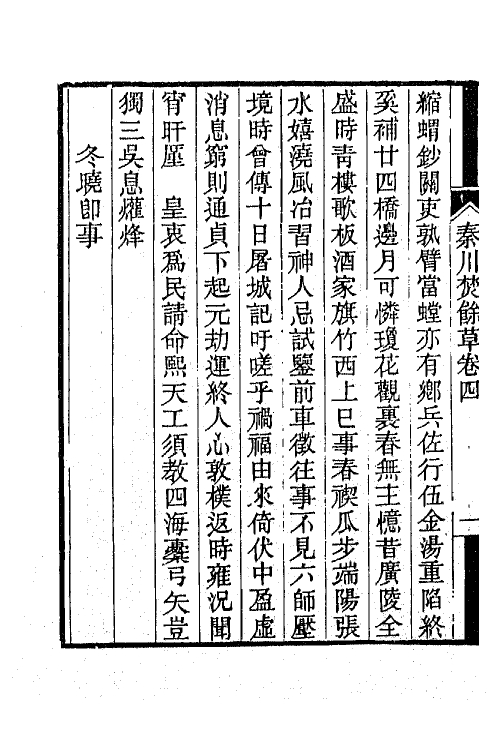 秦川焚餘草卷四
一
縮蝟鈔關吏孰臂當螳亦有鄉兵佐行伍金湯重陷終
奚補廿四橋邊月可憐瓊花觀裏春無主憶昔廣陵全
盛時靑樓歌板酒家旗竹西上巳事春禊瓜步端陽張
水嬉澆風冶習神人忌試鑒前車徵往事不見六師壓
境時曾傳十日屠城記吁嗟乎禍福由來倚伏中盈虛
消息窮則通貞下起元劫運終人心敦樸返時雍況聞
宵旰厪 皇衷爲民請命熙天工須教四海櫜弓矢豈
獨三吳息爟烽
冬曉卽事